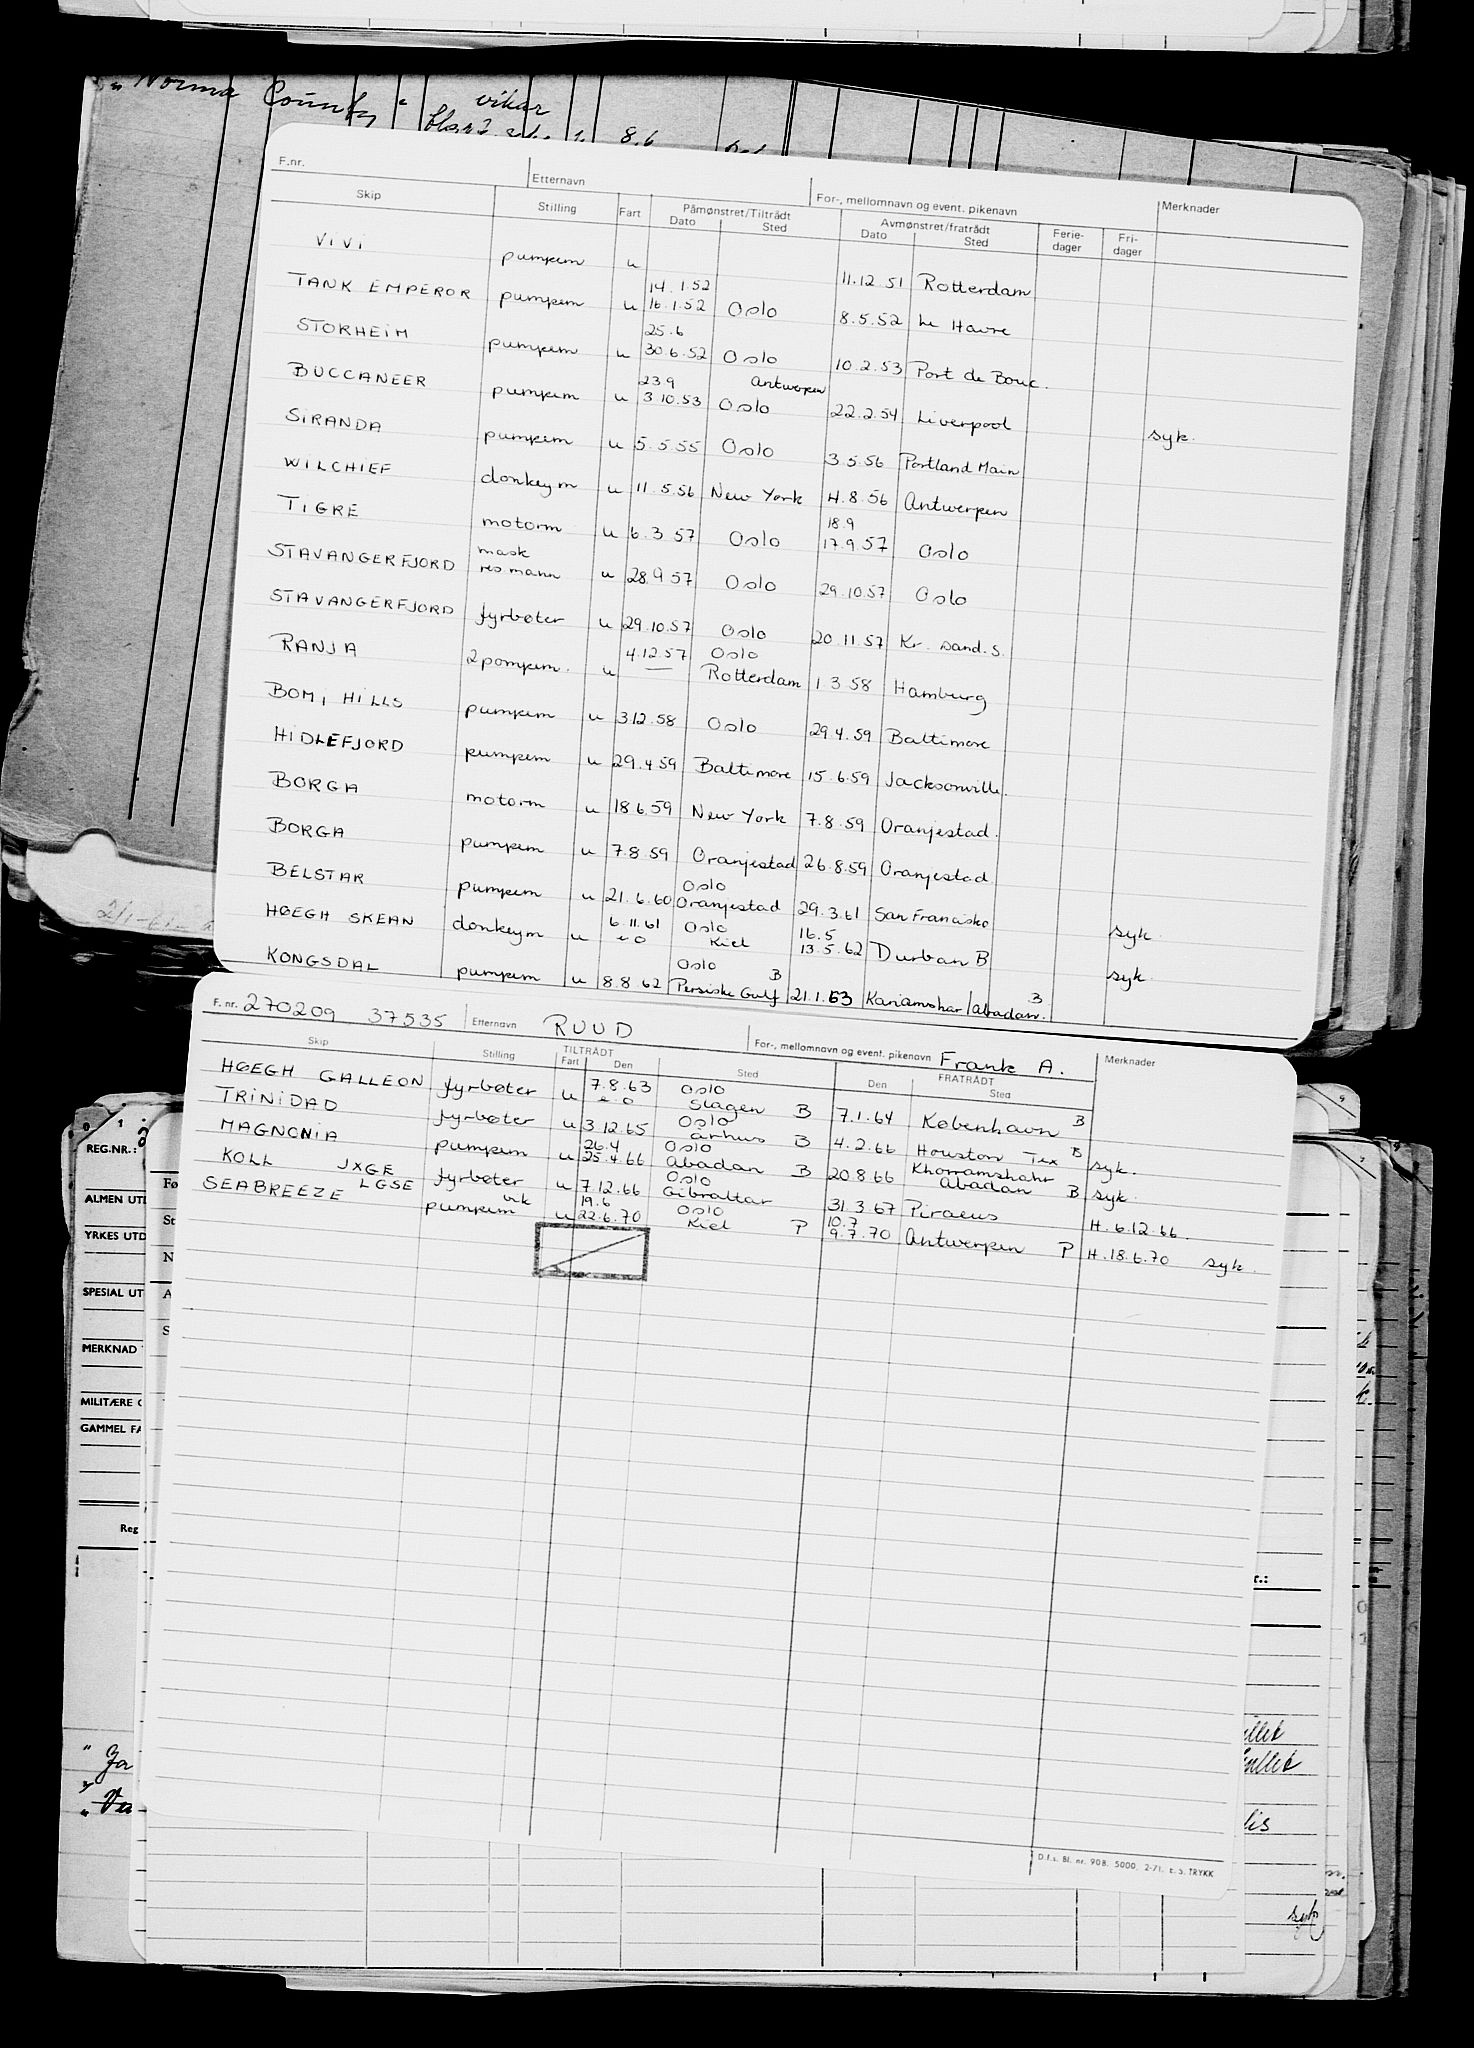 " Norma County " vikar
8.6
F.nr. Etternavn For-, mellomnavn og event. pikenavn Merknader
Skip Stilling Fart Påmønstret/Tiltrådt Dato Sted Avmønstret/fratrådt Dato Sted Ferie-dager Fri-dager
VIVI pumpem u 11.12 51 Rotterdam
TANK EMPEROR pumpem u 14.1.52 16.1.52 Oslo 8.5.52 Le Havre
STORHEIM pumpem u 25.6 30.6.52 Oslo 10.2.53 Port de Bouc.
BUCCANEER pumpem u 23.9 3.10.53 Antwerpen Oslo 22.2.54 Liverpool syk.
SIRANDA pumpem u 5.5.55 Oslo 3.5.56 Portland Main
WILCHIEF donkeym u 11.5.56 New York 4.8.56 Antwerpen
TIGRE motorm u 6.3.57 Oslo 18.9 17.9.57 Oslo
STAVANGERFJORD mask res mann u 28.9 57 Oslo 29.10.57 Oslo
STAVANGERFJORD fyrbøter u 29.10.57 Oslo 20.11.57 Kr. sand. S.
RANJA 2pumpem. u 4.12.57 — Oslo Rotterdam 1.3.58 Hamburg
BOMI HILLS pumpem u 3.12.58 Oslo 29.4.59 Baltimore
HIDLEFJORD pumpem u 29.4.59 Baltimore 15.6.59 Jacksonville.
BORGA motorm u 18.6.59 New York 7.8.59 Oranjestad.
BORGA pumpem u 7.8.59 Oranjestad 26.8.59 Oranjestad
BELSTAR pumpem u 21.6.60 Oslo Oranjestad 29.3.61 San Francisko syk.
HØEGH SKEAN donkeym u 6.11.61 e.o Oslo Kiel 16.5 13.5.62 Durban B syk.
KONGSDAL pumpem u 8.8.62 Oslo B Persiske Gulf 21.1.63 Kariamshar/abadan. B
F. nr. 270209 37535 Etternavn RUUD For-, mellomnavn og event. pikenavn Frank A. Merknader
Skip Stilling TILTRÅDT Fart Den Sted FRATRÅDT Den Sted
HØEGH GALLEON fyrbøter u 7.8.63 e.o Oslo Slagen B 7.1.64 København B
TRINIDAD fyrbøter u 3.12.65 Oslo arhus B 4.2.66 Houston Tex B syk.
MAGNONIA pumpem u 26.4 25.4.66 Oslo Abadan B 20.8.66 Khorramshahr Abadan B syk.
KOLL JXGE fyrbøter u 7.12.66 Oslo Gibraltar 31.3.67 Piraeus H. 6.12.66.
SEABREEZE LGSE pumpem vik u 19.6 22.6.70 Oslo Kiel P 10.7 9.7.70 Antwerpen P H. 18.6.70 syk.
REG.NR.:
ALMEN UTD
YRKES UTD
SPESIAL UT
MERKNAD
MILITÆRE
GAMMEL FA
Reg
D.f.s. Bl. nr. 908. 5000. 2-71. E. S. TRYKK
syk